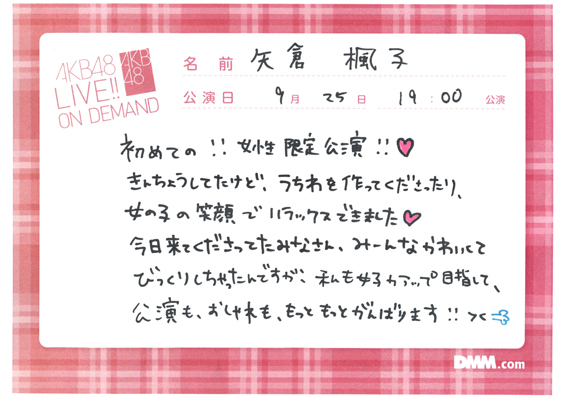 AKB48
LIVE!!
ON DEMAND
AKB
48
名前 矢倉 楓子
公演日 9月 25日 19:00 公演
初めての!!女性限定公演!!♥
きんちょうしてたけど、うちわを作ってくださったり、
女の子の笑顔でリラックスできました♥
今日来てくださってたみなさん、みーんなかわいくて
びっくりしちゃったんですが、私も女子力アップ目指して、
公演も、おしゃれも、もっともっとがんばります!! ><
DMM.com